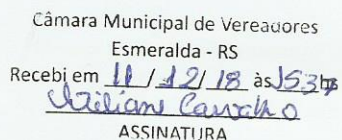 Câmara Municipal de Vereadores
Esmeralda - RS
Recebi em 11 / 12 / 18 às 15:37hs
Carvalho
ASSINATURA